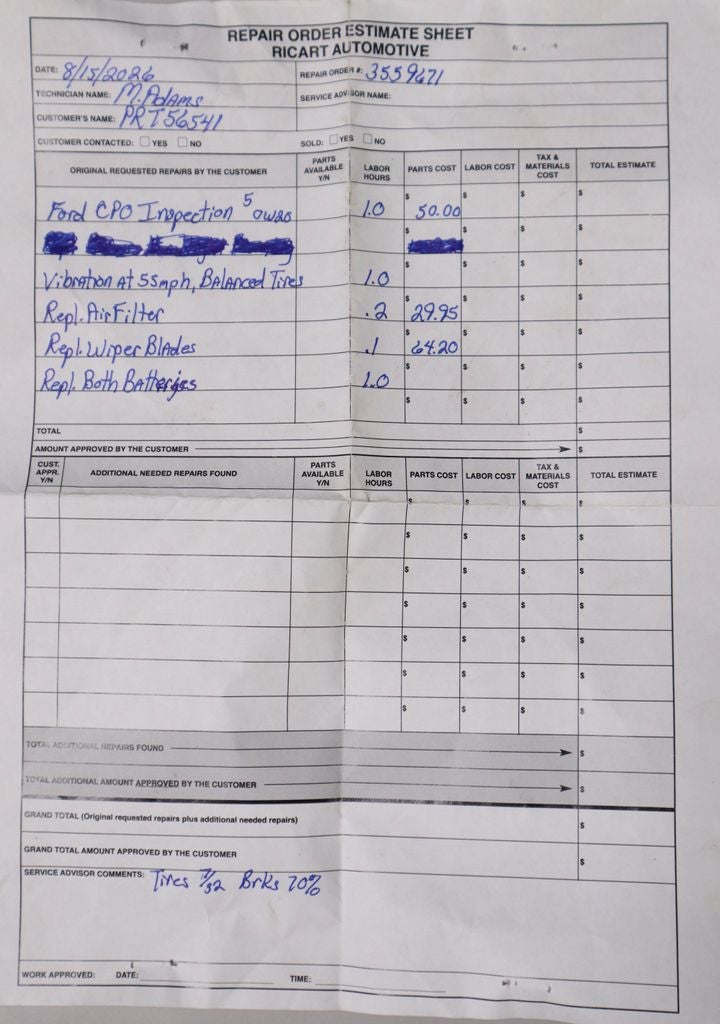 REPAIR ORDER ESTIMATE SHEET
RICART AUTOMOTIVE
DATE: 8/15/2026 REPAIR ORDER #: 3559671
TECHNICIAN NAME: M. Adams SERVICE ADVISOR NAME:
CUSTOMER'S NAME: PRT56541
CUSTOMER CONTACTED: ☐ YES ☐ NO SOLD: ☐ YES ☐ NO
ORIGINAL REQUESTED REPAIRS BY THE CUSTOMER PARTS AVAILABLE Y/N LABOR HOURS PARTS COST LABOR COST TAX & MATERIALS COST TOTAL ESTIMATE
Ford CPO Inspection 5 0w20 1.0 $ 50.00 $ $ $
$ $ $ $
Vibration At 55mph, Balanced Tires 1.0 $ $ $ $
Repl. Air Filter .2 $ 29.95 $ $ $
Repl. Wiper Blades .1 $ 64.20 $ $ $
Repl. Both Batteries 1.0 $ $ $ $
$ $ $ $
TOTAL $
AMOUNT APPROVED BY THE CUSTOMER $
CUST. APPR. Y/N ADDITIONAL NEEDED REPAIRS FOUND PARTS AVAILABLE Y/N LABOR HOURS PARTS COST LABOR COST TAX & MATERIALS COST TOTAL ESTIMATE
$ $ $ $
$ $ $ $
$ $ $ $
$ $ $ $
$ $ $ $
$ $ $ $
$ $ $ $
TOTAL ADDITIONAL REPAIRS FOUND $
TOTAL ADDITIONAL AMOUNT APPROVED BY THE CUSTOMER $
GRAND TOTAL (Original requested repairs plus additional needed repairs) $
GRAND TOTAL AMOUNT APPROVED BY THE CUSTOMER $
SERVICE ADVISOR COMMENTS: Tires /32 Brks 70%
WORK APPROVED: DATE: TIME: